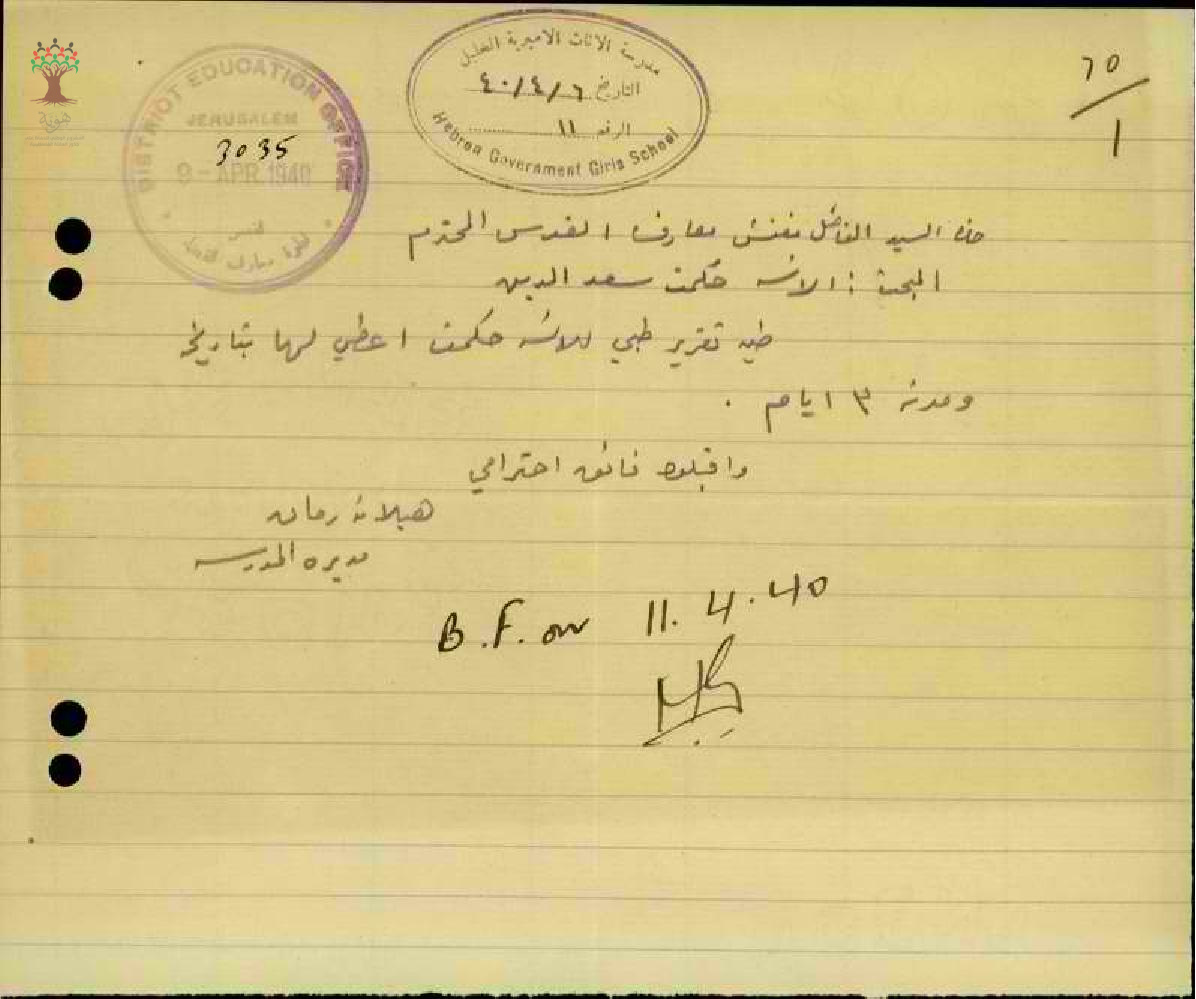 مدرسة الاناث الاميرية الخليل
التاريخ ٤٠/٤/٦
الرقم ١١
Hebron Government Girls School
DISTRICT EDUCATION OFFICE
JERUSALEM
3035
9 - APR 1940
القدس
70
1
هوية
حضرة السيد الفاضل مفتش معارف القدس المحترم
المبحث : الانسه حكمت سعد الدين
طيه تقرير طبي للانسه حكمت اعطي لها بتاريخ
ومدته ٣ ايام .
واقبلوا فائق احترامي
هيلانة رمان
مديره المدرسه
B.F. on 11.4.40